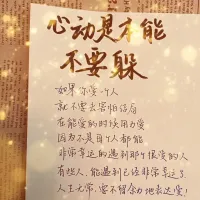 心动是本能
不要躲
如果 你爱一个人
就不要去害怕结局
在能爱的时候用力爱
因为不是每个人都能
非常幸运的遇到那个很爱的人
有些人，能遇到已经非常幸运了
人生无常，要不留余力地表达爱！